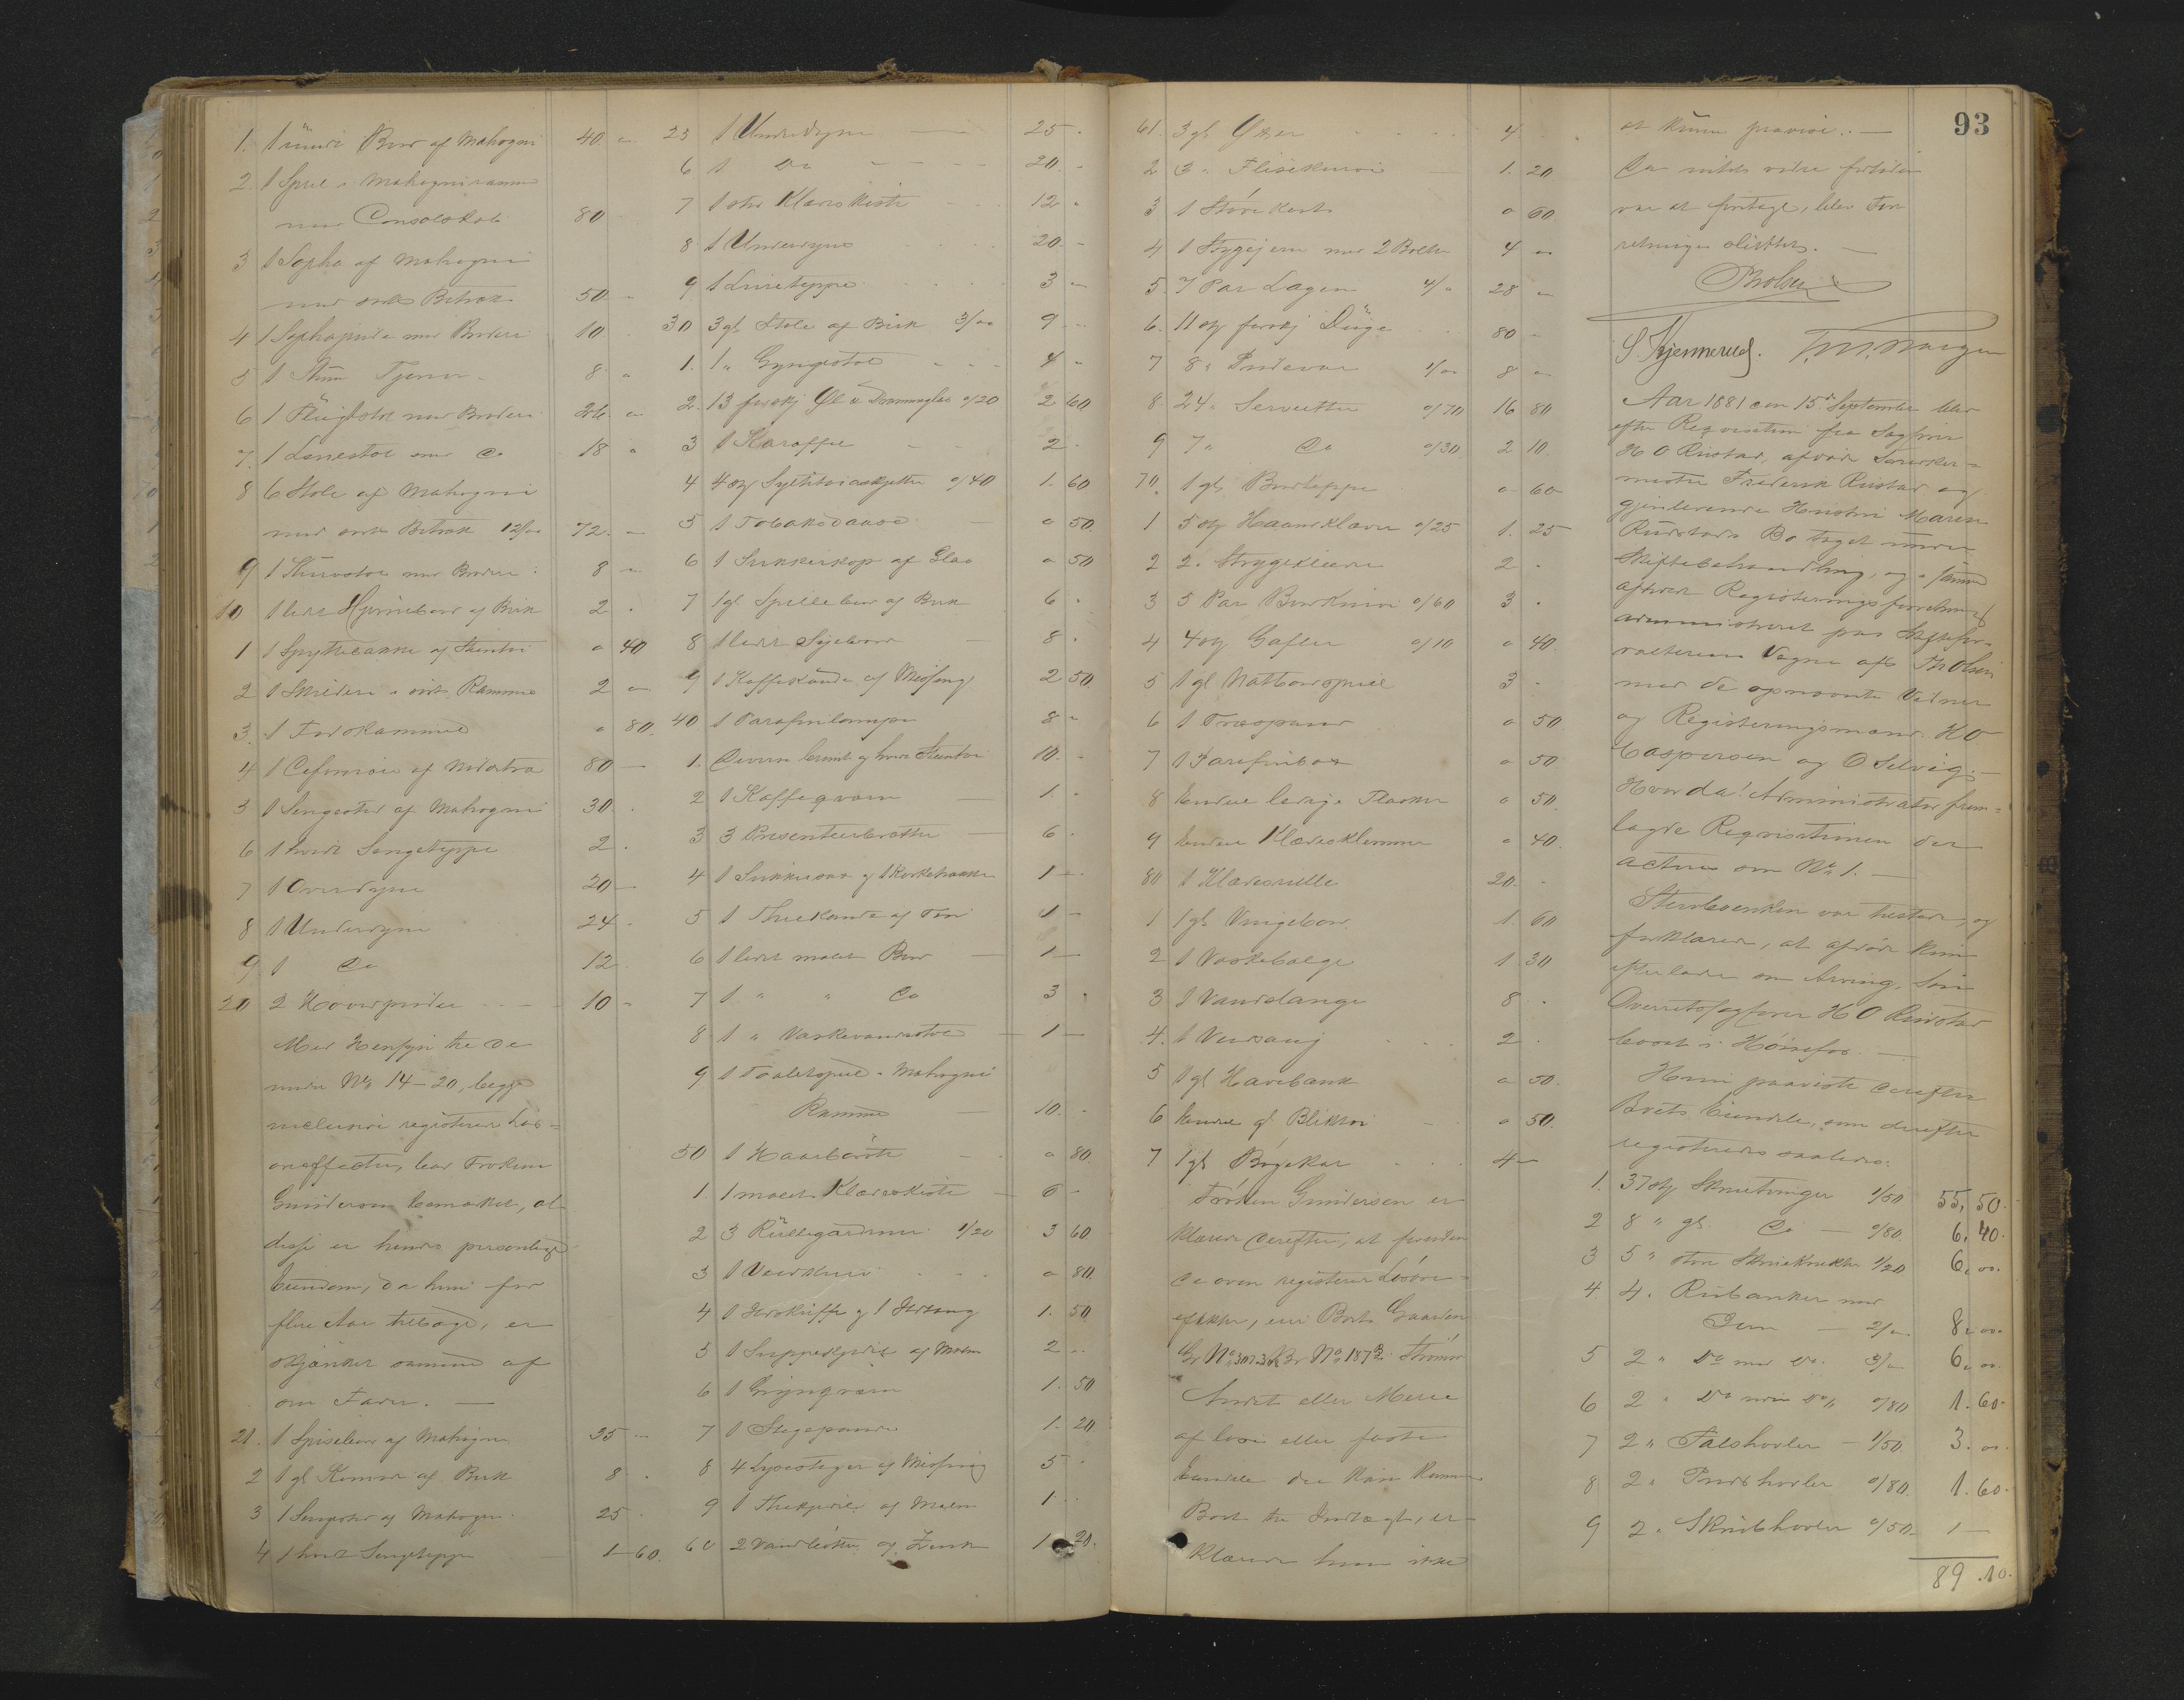 1. 1 rundt Bord af Mahogni 40 "
2. 1 Speil i Mahogniramme
med Consolskab 80
3 1 Sopha af Mahogni
med sort Betræk 50 "
4 1 Sophapude med Broderi 10
5 1 Stum Tjener 8 "
6 1 Fløielstol med Broderi 26 "
7. 1 Lænestol med Do 18 "
8 6 Stole af Mahogni
med sort Betræk 12/" 72. "
9 1 Kurvstol med Broderi 8 "
10 1 lidet Hjørnebord af Birk 2 "
1 1 Spyttebakke af Stentøi " 40
2 1 Skilderi i Ramme 2 "
3. 1 " 80.
4 1 Chefonier af 80 "
5 1 Sengested af Mahogni 30.
6 1 hvidt Sengeteppe 2.
7 1 Overdyne 20 "
8 1 Underdyne 24 "
9 1 Do 12
20 2 Hovedpuder 10 "
Med Hensyn til de
under No 14-20, begge
inclusive registrerede Løs=
øreffecter, lod Frøken
Gundersen bemærket, at
disse er hendes personlige
Eiendom, da hun for
flere Aar tilbage, er
skjænket samme af
sin Fader. —
21. 1 Spisebord af Mahogni 35 "
2 1 gl. Komode af Birk 8 "
3 1 Sengested af Mahogni 25 "
4 1 hvidt Sengeteppe 1 60.
25 1 Underdyne 25 "
6 1 Do 20. "
7 1 stor Klædeskiste 12 "
8 1 Underdyne 20. "
9 1 Linteppe 3 "
30 3 gl. Stole af Birk 3/" 9 "
1. 1 " Gyngestol 4 "
2. 13 forskj Øl & Dramglas "/20 2 60
3 1 Karaffel 2 "
4 4 St Syltetøiasjetter "/40 1. 60
5 1 Tobaksdaase " 50.
6 1 Sukkerkop af Glas " 50
7 1 gl Spillebord af Birk 6.
8 1 lidet Sybord 8.
9 1 Kaffekande af Messing 2 50.
40 1 Parafinlampe 8 "
1. Diverse brunt og hvidt Stentøi 10. "
2 1 Kaffeqværn 1. "
3 3 Præsenteerbretter 6.
4 1 Sukkersax & 1 1 "
5 1 Theekande af Tin 1 "
6 1 lidet malet Bord 1 "
7 1 " " Do 3 "
8 1 " Vaskevandsstol 1 "
9 1 Toiletspeil i Mahogni
Ramme 10. "
50 1 Haarbørste " 80.
1. 1 malet Klædeskiste 6 "
2 3 Rullegardiner 1/20 3 60
3 1 Vedkurv " 80.
4 1 Ildskuffe & 1 Ildtang 1. 50
5 1 Suppeskje af Malm 2 "
6 1 Grynqværn 1. 50
7 1 Stegepande 1. 20
8 4 Lysestager af Messing 5 "
9 1 af Malm 1 "
60 2 Vandbøtter af Zink 1 20.
93
61. 3 gl. Øxer 4 "
2 3 " Flisekurve 1. 20
3 1 Støvekost " 60
4 1 Strygejern med 2 Bolter 4 "
5. 7 Par Lagen 4/" 28 "
6. 11 St forskj Duge 80 "
7 8 " Pudevar 1/" 8 "
8 24 " Servietter "/70 16 80
9 7 " Do "/30 2 10.
70. 1 gl. Bordteppe " 60
1 5 St Haandklæder "/25 1. 25
2 2 " Strygeklæder 2 "
3 5 Par Bordkniver "/60 3 "
4 4 St Gafler "/10 " 40.
5 1 gl Natbordspeil 3 "
6 1 Træspand " 50.
7 1 Parafinbox " 50
8 Endel ledige Flasker " 50.
9 Endel Klædesklemmer " 40.
80 1 Klædesrulle 20. "
1 1 gl. Vingebord 1. 60
2 1 Vaskebalge 1. 30
3 1 Vandslange 8 "
4. 1 Vedsaug 2.
5 1 gl. Havebænk " 50.
6 Endel gl. Bliktøi " 50.
7 1 gl Brygekar 4 "
Frøken Gundersen er
klærede derefter, at foruden
de oven registrerede Løsøre=
effekter, eier Boet Gaarden
Gr No 307.3 Br No 187 B. Strømsø
Andet eller Mere
af løse eller faste
Eiendele der kan komme
Boet til Indtægt, er
klærede hun ikke
at kunne paavise. —
Da intet videre fortiden
var at foretage, blev For
retningen sluttet. —
Th Olsen
S. Kjennerud.
Aar 1881 den 15de September blev
efter Requisition fra Sagfører
H O Rustad, afdøde Snedker=
mester Frederik Rustad og
gjenlevende Hustru Maren
Rustads Bo taget under
Skiftebehandling, og i samme
afholdt Registreringsforretning
administreret paa Skiftefor-
valterens Vegne af Th Olsen
med de opnævnte Vidner
og Registreringsmænd. K O
Caspersen og O Selvig. —
Hvorda: Administrator frem=
lagde Reqvisitionen der
acteres som No 1. —
Sterboenken var tilstede, og
forklarede, at afdøde kun
efterlader en Arving, Søn
Overretssagfører H O Rustad
boesat i Hønefos. —
Hun paaviste derefter
Boets Eiendele, som derefter
registreredes saaledes:
1. 37 St Skruetvinger 1/50 55, 50.
2 8 " gl. Do "/80. 6. 40.
3 5 " store Skruekrukker 1/20 6. "
4 4. Rubanker med
Jern 2/" 8. "
5 2 " Do med Do. 3/" 6. "
6 2 " Do uden Do "/80 1. 60.
7 2 " Falshøvler 1/50 3. "
8 2 " Pudshøvler "/80. 1. 60.
9 2 " Skrubhøvler "/50 1 —
89. 10.